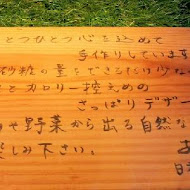 とつひとつ心を込めて
手作りしています
砂糖の量をできるだけ少な
とカロリー控えめの
さっぱりデザー
や野菜から出る自然な
しみ下さい。